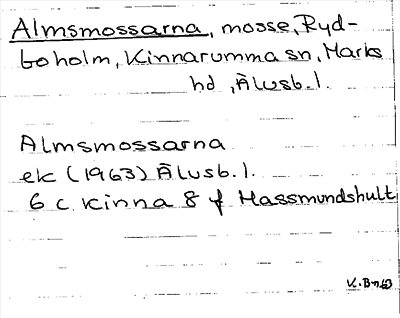 Almsmossarna, mosse, Ryd-
boholm, Kinnarumma sn, Marks
hd, Älvsb. l.
Almsmossarna
ek (1963) Älvsb. l.
6 C Kinna 8 f Hassmundshult